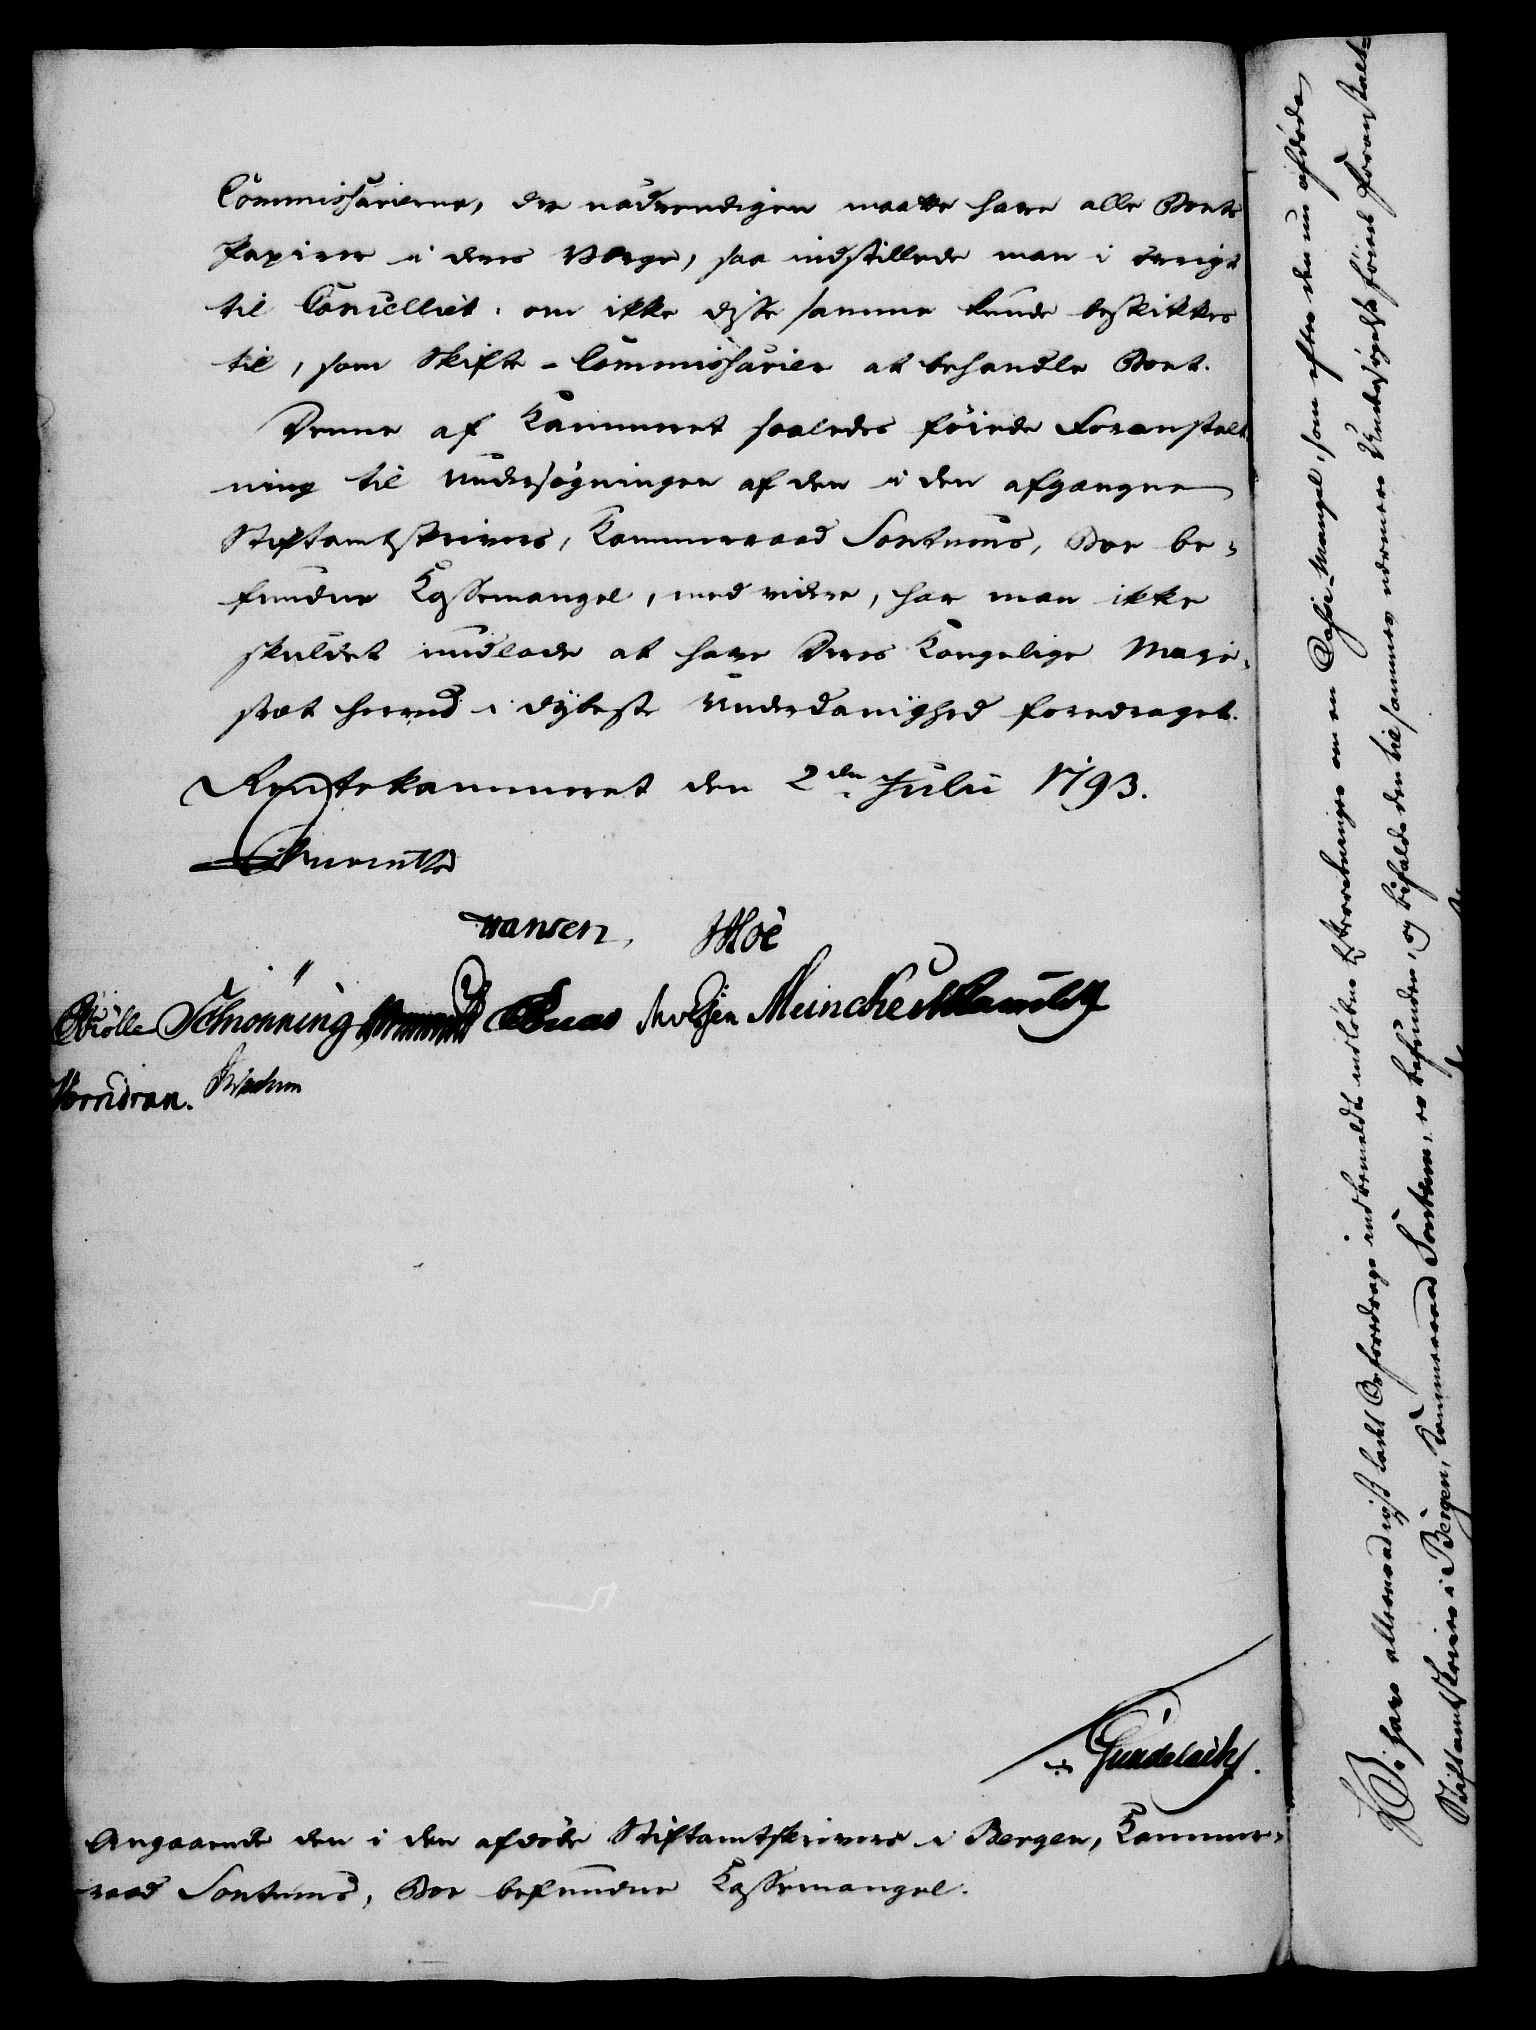 Commissarierne, der nødvendigen maatte have alle Boets
Papirer i deres Værge, saa indstillede man i øvrigt
til Cancelliet, om ikke disse samme kunde beskikkes
til, som Skifte-Commissarier at behandle Boet.
Denne af Kammeret saaledes föiede Foranstalt
ning til Undersøgningen af den i den afgangne
Stiftamtskrivers, Kammerraad Sontums, Boe be-
fundne Kassemangel, med videre, har man ikke
skuldet undlade at have Deres Kongelige Maje-
stæt herved i dÿbeste Underdanighed foredraget.
Rentekammeret den 2den Julii 1793.
Hansen, Moe
Schönning Meincke
Wormskiold.
Gundelach.
Angaaende den i den afdøde Stiftamtskrivers i Bergen, Kammer-
raad Sontums, Boe befundne Kassemangel.
Vi have allernaadigst ladet Os foredrage indbemeldte indløbne Efterretninger om en Casse-Mangel, som efter den nu afdøde
Stiftamtskriver i Bergen, Kammerraad Sontum, er befunden, og bifalde den til sammes nærmere Undersøgelse föiede Foranstalt-